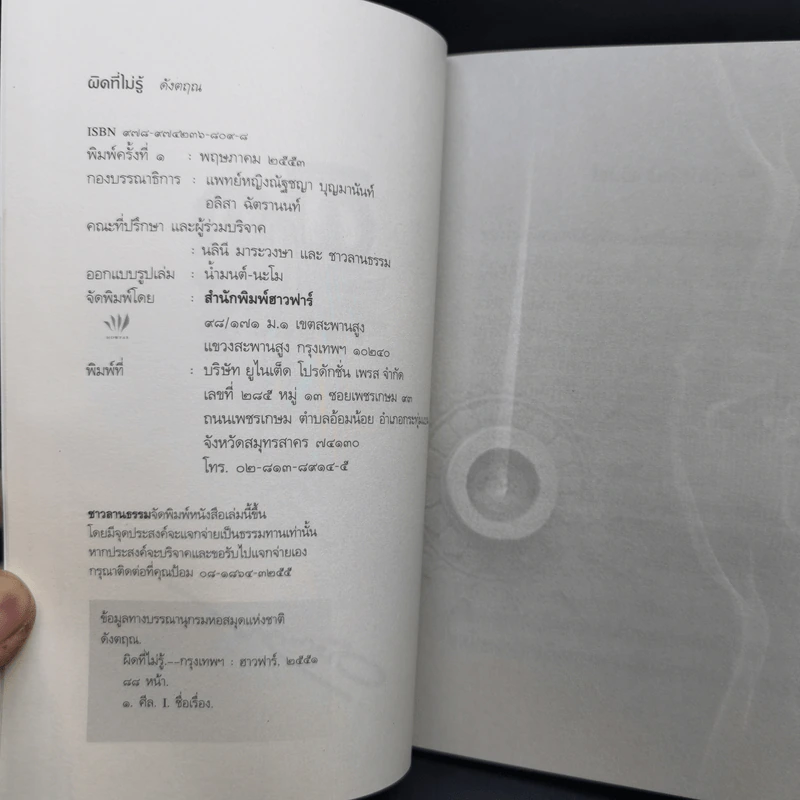 ผิดที่ไม่รู้ ดังตฤณ
ISBN ๙๗๘-๙๗๔๒๓๖-๘๐๙-๘
พิมพ์ครั้งที่ ๑ : พฤษภาคม ๒๕๕๓
กองบรรณาธิการ : แพทย์หญิงณัฐชญา บุญมานันท์
อลิสา ฉัตรานนท์
คณะที่ปรึกษา และผู้ร่วมบริจาค
: นลินี มาระวงษา และ ชาวลานธรรม
ออกแบบรูปเล่ม : น้ำมนต์-นะโม
จัดพิมพ์โดย : สำนักพิมพ์ฮาวฟาร์
๙๘/๑๗๑ ม.๑ เขตสะพานสูง
แขวงสะพานสูง กรุงเทพฯ ๑๐๒๔๐
พิมพ์ที่ : บริษัท ยูไนเต็ด โปรดักชั่น เพรส จำกัด
เลขที่ ๒๘๕ หมู่ ๑๓ ซอยเพชรเกษม ๙๓
ถนนเพชรเกษม ตำบลอ้อมน้อย
จังหวัดสมุทรสาคร ๗๔๑๓๐
โทร. ๐๒-๘๑๓-๘๙๑๔-๕
ชาวลานธรรมจัดพิมพ์หนังสือเล่มนี้ขึ้น
โดยมีจุดประสงค์จะแจกจ่ายเป็นธรรมทานเท่านั้น
หากประสงค์จะบริจาคและขอรับไปแจกจ่ายเอง
กรุณาติดต่อที่คุณป้อม ๐๘-๑๘๖๔-๓๒๕๕
ข้อมูลทางบรรณานุกรมหอสมุดแห่งชาติ
ดังตฤณ.
ผิดที่ไม่รู้.--กรุงเทพฯ : ฮาวฟาร์, ๒๕๕๑
๘๘ หน้า.
๑. ศีล. I. ชื่อเรื่อง.